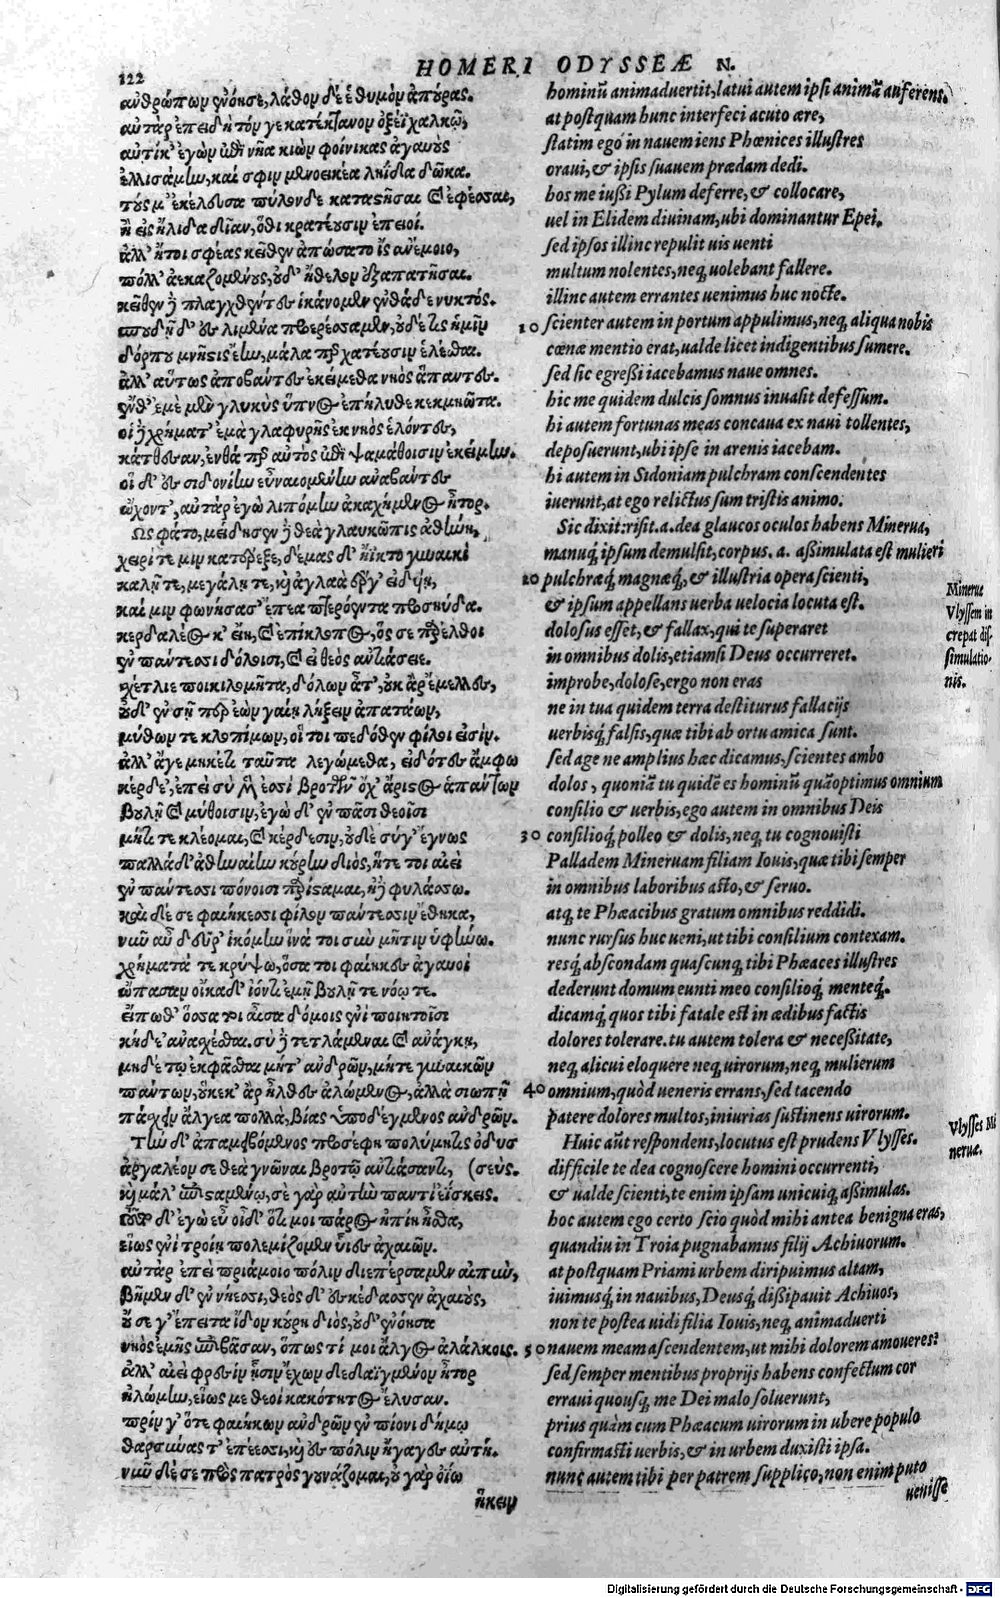 122
HOMERI ODYSSEÆ N.
ἀνθρώπων ἐνόησε, λάθον δέ ἑ θυμὸν ἀπούρας.
αὐτὰρ ἐπειδὴ τόν γε κατέκτανον ὀξέϊ χαλκῷ,
αὐτίκ' ἐγὼν ἐπὶ νῆα κιὼν φοίνικας ἀγαυοὺς
ἐλλισάμην, καί σφιν μενοεικέα ληΐδα δῶκα.
τούς μ' ἐκέλευσα πύλονδε καταστῆσαι καὶ ἐφέσσαι,
ἢ εἰς ἤλιδα δῖαν, ὅθι κρατέουσιν ἐπειοί.
ἀλλ' ἤτοι σφέας κεῖθεν ἀπώσατο ἲς ἀνέμοιο,
πόλλ' ἀεκαζομένους, οὐδ' ἤθελον ἐξαπατῆσαι.
κεῖθεν δὲ πλαγχθέντες ἱκάνομεν ἐνθάδε νυκτός.
σπουδῇ δ' ἐς λιμένα προερέσσαμεν, οὐδέ τις ἡμῖν
δόρπου μνῆστις ἔην, μάλα περ χατέουσιν ἑλέσθαι.
ἀλλ' αὔτως ἀποβάντες ἐκείμεθα νηὸς ἅπαντες.
ἔνθ' ἐμὲ μὲν γλυκὺς ὕπνος ἐπήλυθε κεκμηῶτα.
οἱ δὲ χρήματ' ἐμὰ γλαφυρῆς ἐκ νηὸς ἑλόντες,
κάτθεσαν, ἔνθά περ αὐτὸς ἐπὶ ψαμάθοισιν ἐκείμην.
οἱ δ' ἐς σιδονίην εὐναιομένην ἀναβάντες
ᾤχοντ', αὐτὰρ ἐγὼ λιπόμην ἀκαχήμενος ἦτορ.
Ὣς φάτο, μείδησεν δὲ θεὰ γλαυκῶπις ἀθήνη,
χειρί τε μιν κατέρεξε, δέμας δ' ἤϊκτο γυναικὶ
καλῇ τε, μεγάλῃ τε, καὶ ἀγλαὰ ἔργ' εἰδυίῃ,
καί μιν φωνήσασ' ἔπεα πτερόεντα προσηύδα.
κερδαλέος κ' εἴη, καὶ ἐπίκλοπος, ὅς σε παρέλθοι
ἐν πάντεσσι δόλοισι, καὶ εἰ θεὸς ἀντιάσειε.
σχέτλιε ποικιλομῆτα, δόλων ἆτ', οὐκ ἄρ' ἔμελλες,
οὐδ' ἐν σῇ περ ἐὼν γαίῃ λήξειν ἀπατάων,
μύθων τε κλοπίμων, οἵ τοι πεδόθεν φίλοι εἰσίν.
ἀλλ' ἄγε μηκέτι ταῦτα λεγώμεθα, εἰδότες ἄμφω
κέρδε', ἐπεὶ σὺ μέν ἐσσι βροτῶν ὄχ' ἄριστος ἁπάντων
βουλῇ καὶ μύθοισιν, ἐγὼ δ' ἐν πᾶσι θεοῖσι
μήτι τε κλέομαι, καὶ κέρδεσιν, οὐδὲ σύγ' ἔγνως
παλλάδ' ἀθηναίην κούρην διὸς, ἥτε τοι αἰεὶ
ἐν πάντεσσι πόνοισι παρίσταμαι, ἠδὲ φυλάσσω.
καὶ δέ σε φαιήκεσσι φίλον πάντεσσιν ἔθηκα,
νῦν αὖ δεῦρ' ἱκόμην ἵνά τοι σὺν μῆτιν ὑφήνω.
χρήματά τε κρύψω, ὅσα τοι φαίηκες ἀγαυοὶ
ὤπασαν οἴκαδ' ἰόντι ἐμῇ βουλῇ τε νόῳ τε.
εἴπωθ' ὅσσά τοι αἶσα δόμοις ἔνι ποιητοῖσι
κήδε' ἀνασχέσθαι. σὺ δὲ τετλάμεναι καὶ ἀνάγκῃ,
μηδέ τῳ ἐκφάσθαι μήτ' ἀνδρῶν, μήτε γυναικῶν
πάντων, οὕνεκ' ἄρ' ἦλθες ἀλώμενος, ἀλλὰ σιωπῇ
πάσχειν ἄλγεα πολλὰ, βίας ὑποδέγμενος ἀνδρῶν.
Τὴν δ' ἀπαμειβόμενος προσέφη πολύμητις ὀδυσ
ἀργαλέον σε θεὰ γνῶναι βροτῷ ἀντιάσαντι, (σεύς.
καὶ μάλ' ἐπισταμένῳ, σὲ γὰρ αὐτὴν παντὶ ἐΐσκεις.
τοῦτο δ' ἐγὼ εὖ οἶδ' ὅτι μοι πάρος ἠπίη ἦσθα,
εἵως ἐνὶ τροίῃ πολεμίζομεν υἷες ἀχαιῶν.
αὐτὰρ ἐπεὶ πριάμοιο πόλιν διεπέρσαμεν αἰπὺν,
βῆμεν δ' ἐν νήεσσι, θεὸς δ' ἐκέδασσεν ἀχαιοὺς,
οὔ σε γ' ἔπειτα ἴδον κούρη διὸς, οὐδ' ἐνόησα
νηὸς ἐμῆς ἐπιβᾶσαν, ὅπως τί μοι ἄλγος ἀλάλκοις.
ἀλλ' αἰεὶ φρεσὶν ᾗσιν ἔχων δεδαϊγμένον ἦτορ
ἠλώμην, εἵως με θεοὶ κακότητος ἔλυσαν.
πρίν γ' ὅτε φαιήκων ἀνδρῶν ἐν πίονι δήμῳ
θάρσυνάς τ' ἐπέεσσι, καὶ ἐς πόλιν ἤγαγες αὐτή.
νῦν δέ σε πρὸς πατρὸς γουνάζομαι, οὐ γὰρ ὀΐω
ἥκειν
hominũ animaduertit, latui autem ipsi animã auferens.
at postquam hunc interfeci acuto ære,
statim ego in nauem iens Phœnices illustres
oraui, & ipsis suauem prædam dedi.
hos me iußi Pylum deferre, & collocare,
uel in Elidem diuinam, ubi dominantur Epei.
sed ipsos illinc repulit uis uenti
multum nolentes, neq; uolebant fallere.
illinc autem errantes uenimus huc nocte.
10 scienter autem in portum appulimus, neq; aliqua nobis
cœnæ mentio erat, ualde licet indigentibus sumere.
sed sic egreßi iacebamus naue omnes.
hic me quidem dulcis somnus inuasit defessum.
hi autem fortunas meas concaua ex naui tollentes,
deposuerunt, ubi ipse in arenis iacebam.
hi autem in Sidoniam pulchram conscendentes
iuerunt, at ego relictus sum tristis animo.
Sic dixit: risit.a. dea glaucos oculos habens Minerua,
manuq; ipsum demulsit, corpus.a. aßimulata est mulieri
20 pulchræq; magnæq;, & illustria opera scienti,
& ipsum appellans uerba uelocia locuta est.
dolosus esset, & fallax, qui te superaret
in omnibus dolis, etiamsi Deus occurreret.
improbe, dolose, ergo non eras
ne in tua quidem terra destiturus fallacijs
uerbisq; falsis, quæ tibi ab ortu amica sunt.
sed age ne amplius hæc dicamus, scientes ambo
dolos, quoniã tu quidẽ es hominũ quãoptimus omnium
consilio & uerbis, ego autem in omnibus Deis
30 consilioq; polleo & dolis, neq; tu cognouisti
Palladem Mineruam filiam Iouis, quæ tibi semper
in omnibus laboribus asto, & seruo.
atq; te Phæacibus gratum omnibus reddidi.
nunc rursus huc ueni, ut tibi consilium contexam.
resq; abscondam quascunq; tibi Phæaces illustres
dederunt domum eunti meo consilioq; menteq;.
dicamq; quos tibi fatale est in ædibus factis
dolores tolerare. tu autem tolera & neceßitate,
neq; alicui eloquere neq; uirorum, neq; mulierum
40 omnium, quòd ueneris errans, sed tacendo
patere dolores multos, iniurias sustinens uirorum.
Huic aũt respondens, locutus est prudens Vlysses.
difficile te dea cognoscere homini occurrenti,
& ualde scienti, te enim ipsam unicuiq; aßimulas.
hoc autem ego certo scio quòd mihi antea benigna eras,
quandiu in Troia pugnabamus filij Achiuorum.
at postquam Priami urbem diripuimus altam,
iuimusq; in nauibus, Deusq; dißipauit Achiuos,
non te postea uidi filia Iouis, neq; animaduerti
50 nauem meam ascendentem, ut mihi dolorem amoueres:
sed semper mentibus proprijs habens confectum cor
erraui quousq; me Dei malo soluerunt,
prius quàm cum Phæacum uirorum in ubere populo
confirmasti uerbis, & in urbem duxisti ipsa.
nunc autem tibi per patrem supplico, non enim puto
uenisse
Mineruæ
Vlyssem in
crepat dis
simulatio-
nis.
Vlysses Mi
neruæ.
Digitalisierung gefördert durch die Deutsche Forschungsgemeinschaft - DFG